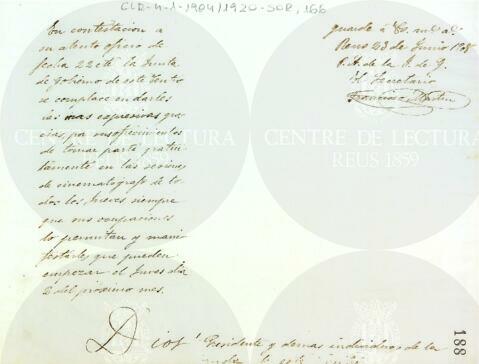 CLR-4-1-1904/1920-SOR, 166
En contestacion á
su atento oficio de
fecha 22 cte la Junta
de Gobierno de este Centro
se complace en darles
las mas expresivas gra
cias, por su ofrecimiento
de tomar parte gratui
tamente en las sesiones
de cinematografo de to
dos los Jueves siempre
que sus ocupaciones
lo permitan y mani
festarles que pueden
empezar el Jueves dia
2 del próximo mes.
Dios
guarde á
Reus 23 de Junio
P. A. de la J. de G.
El Secretario
Francisco
Presidente y demas individuos de la
de este
CENTRE DE LECTURA
REUS 1859
CENTRE DE LECTURA
REUS 1859
188